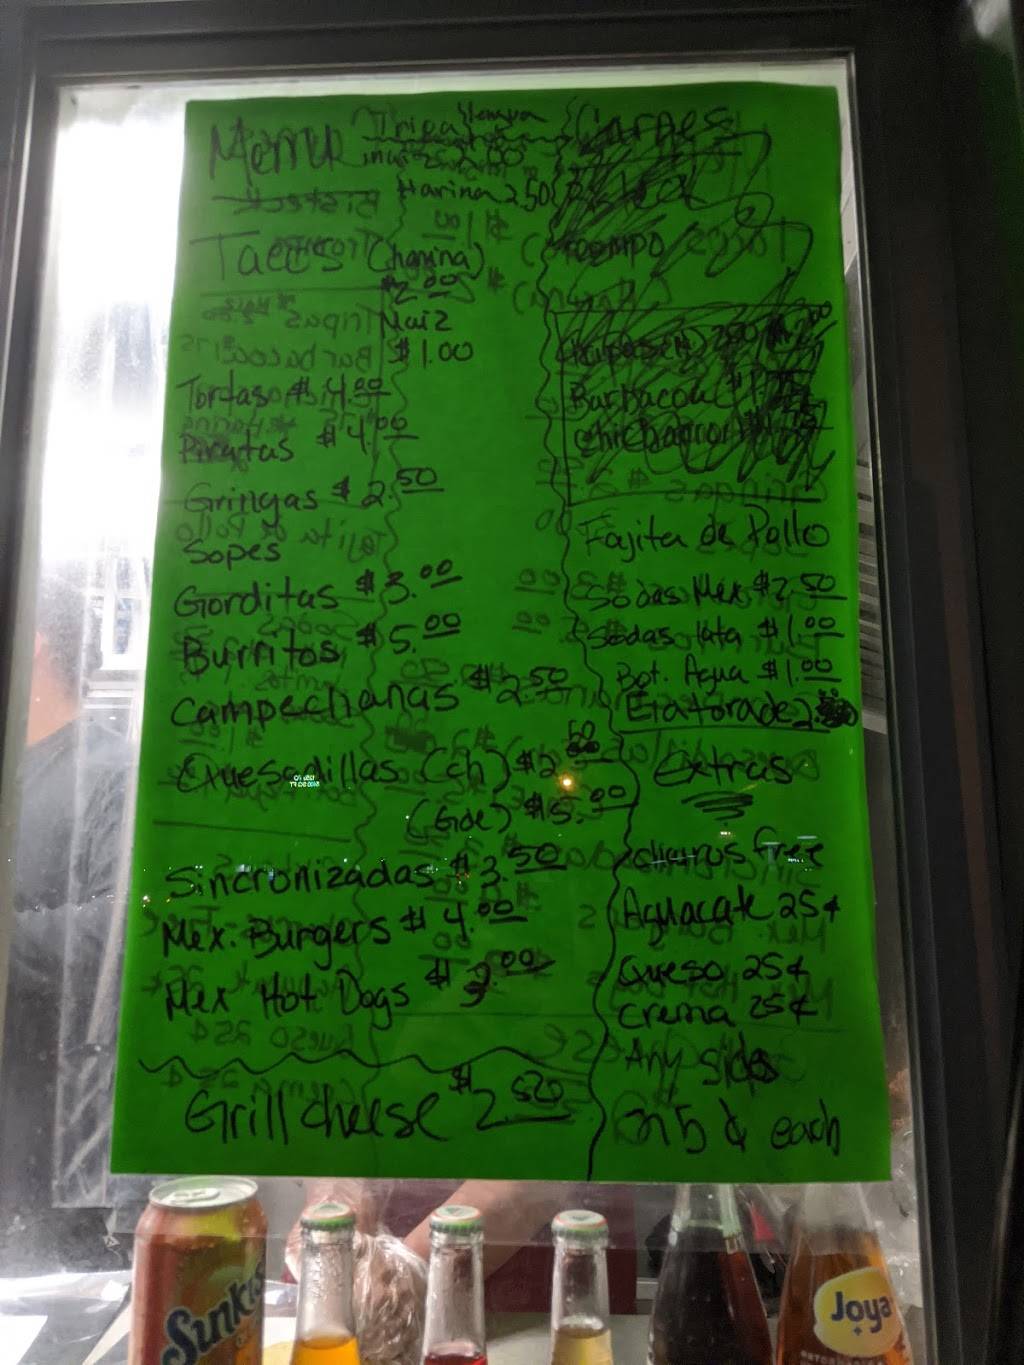 Menu
Tripa lengua
maiz 2.00
Harina 2.50
Tacos (harina)
$2.00
Maiz
$1.00
Tortas $4.00
Piratas $4.00
Gringas $2.50
Sopes
Gorditas $3.00
Burritos $5.00
Campechanas $2.50
Quesadillas (ch) $2.50
(Gde) $5.00
Sincronizadas $3.50
Mex. Burgers $4.00
Mex Hot Dogs
Grill cheese $2.50
Carnes
Bistec
Trompo
Barbacoa
Chicharron
Fajita de Pollo
Sodas Mex $2.50
Sodas lata $1.00
Bot. Agua $1.00
Gatorade 2.
Extras
charros free
Aguacate 25¢
Queso 25¢
Crema 25¢
Any side
25¢ each
Sunkist
Joya